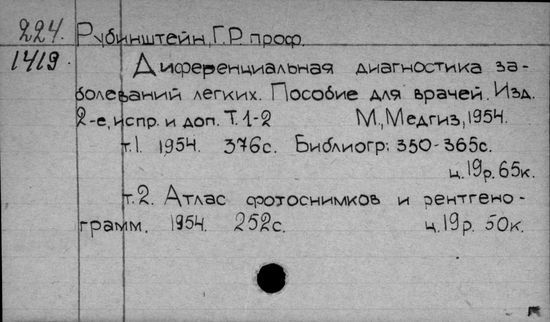 224. Рубинштейн, Г.Р. проф.
1419 Диференциальная диагностика за-
болеваний легких. Пособие для врачей. Изд.
2-е, испр. и доп. Т. 1-2 М., Медгиз, 1954.
т.1. 1954. 376с. Библиогр: 350-365с.
ц. 19р. 65к.
т.2. Атлас фотоснимков и рентгено-
грамм. 1954. 252с. ц. 19р. 50к.